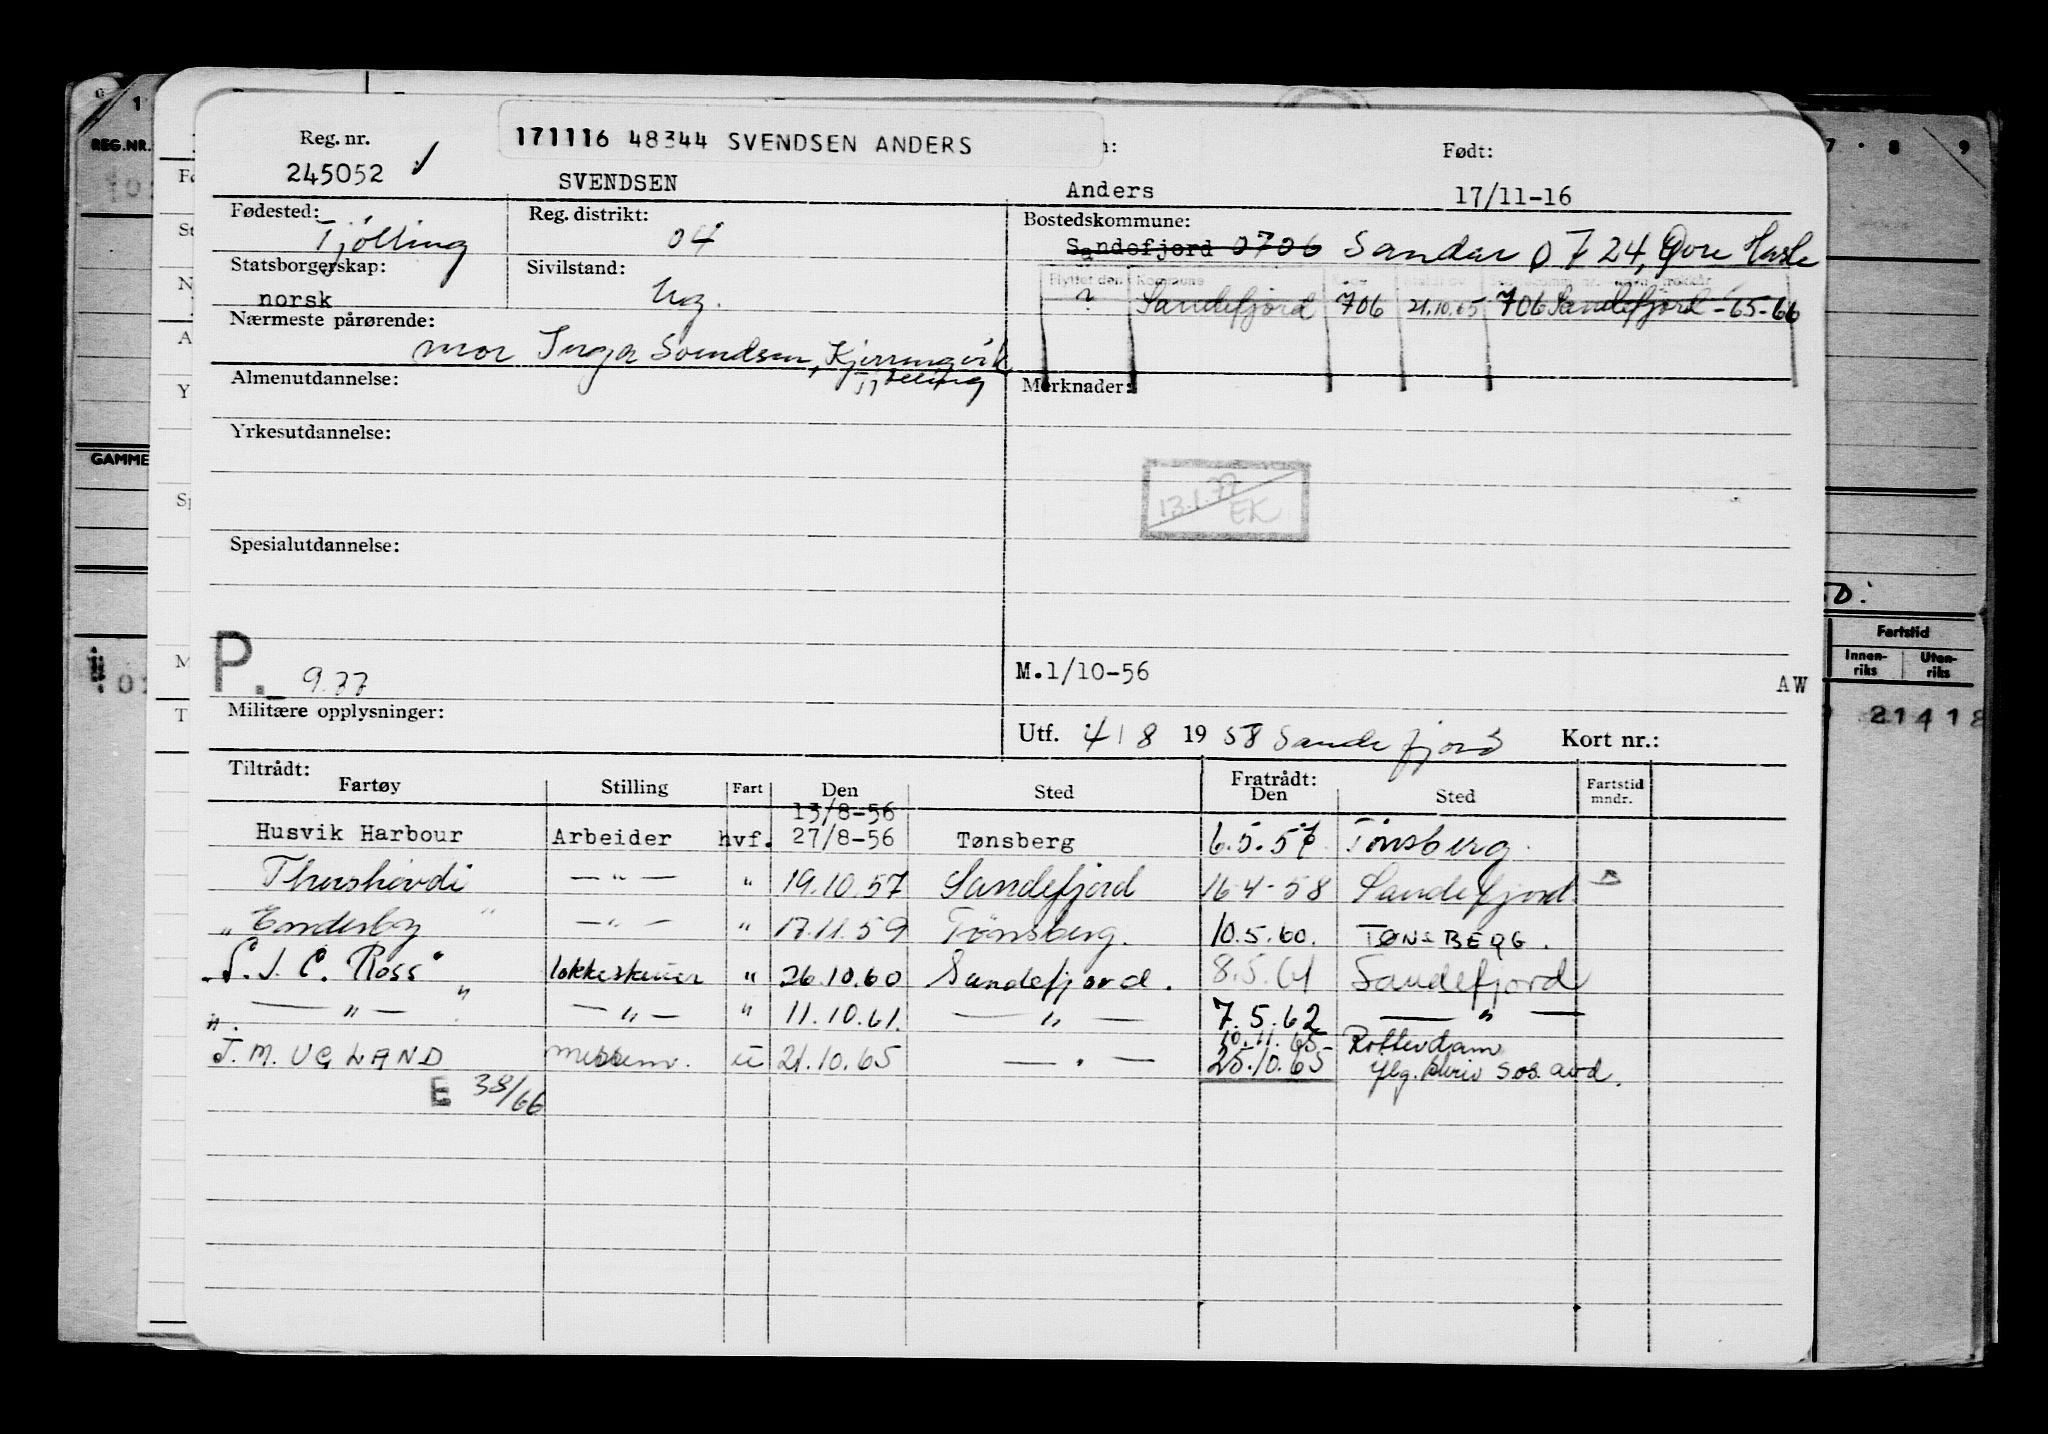 171116 48344 SVENDSEN ANDERS
Reg. nr. Født:
245052 SVENDSEN Anders 17/11-16
Fødested: Reg. distrikt: Bostedskommune:
Tjølling 04 Sandefjord 0706 Sandar 0724, Øvre Hasle
Statsborgerskap: Sivilstand: Flyttet den Kommune
norsk Ug. ? Sandefjord 706 21.10.65 706 Sandefjord -65-66
Nærmeste pårørende:
mor Inga Svendsen, Kjerringvik,
Tjølling
Almenutdannelse: Merknader:
Yrkesutdannelse:
13.1.77
EK
Spesialutdannelse:
P. 9.77 M.1/10-56 AW
Militære opplysninger:
Utf. 4/8 1958 Sandefjord Kort nr.:
Tiltrådt: Fratrådt:
Fartøy Stilling Fart Den Sted Den Sted Fartstid mndr.
13/8-56
Husvik Harbour Arbeider hvf. 27/8-56 Tønsberg 6.5.57 Tønsberg.
Thorshøvdi —"— " 19.10.57 Sandefjord 16-4-58 Sandefjord
"Enderby" —"— " 17.11.59 Tønsberg. 10.5.60. TØNSBERG.
"S. J. C. Ross" " 26.10.60 Sandefjord. 8.5.61 Sandefjord
—"— —"— " 11.10.61. —"— 7.5.62 —"—
10.11.65 Rotterdam
J. M. UGLAND messem. u 21.10.65 —"— 25.10.65 flg. skriv sos. avd.
E 38/66
REG.NR.
GAMME
Fartstid
Innen-riks Uten-riks
21418